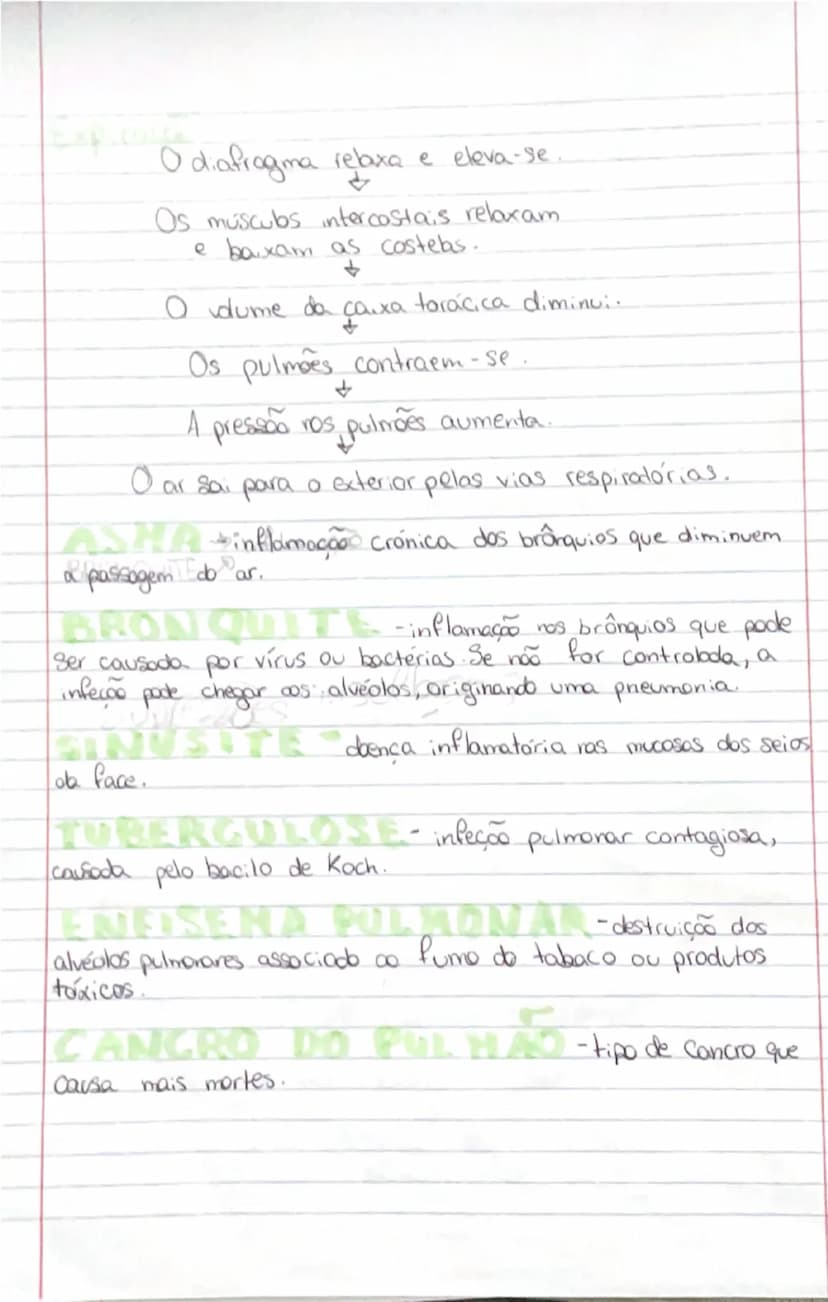 Expiração
O diafragma relaxa e eleva-se.
↓
Os músculos intercostais relaxam
e baixam as costelas.
↓
O volume da caixa torácica diminui.
↓
Os pulmões contraem-se.
↓
A pressão nos pulmões aumenta.
↓
O ar sai para o exterior pelas vias respiratórias.
ASMA → inflamação crónica dos brônquios que diminuem
a passagem do ar.
BRONQUITE - inflamação nos brônquios que pode
ser causada por vírus ou bactérias. Se não for controlada, a
infeção pode chegar aos alvéolos, originando uma pneumonia.
SINUSITE - doença inflamatória nas mucosas dos seios
da face.
TUBERCULOSE - infeção pulmonar contagiosa,
causada pelo bacilo de Koch.
ENFISEMA PULMONAR - destruição dos
alvéolos pulmonares associado ao fumo do tabaco ou produtos
tóxicos.
CANCRO DO PULMÃO - tipo de cancro que
causa mais mortes.